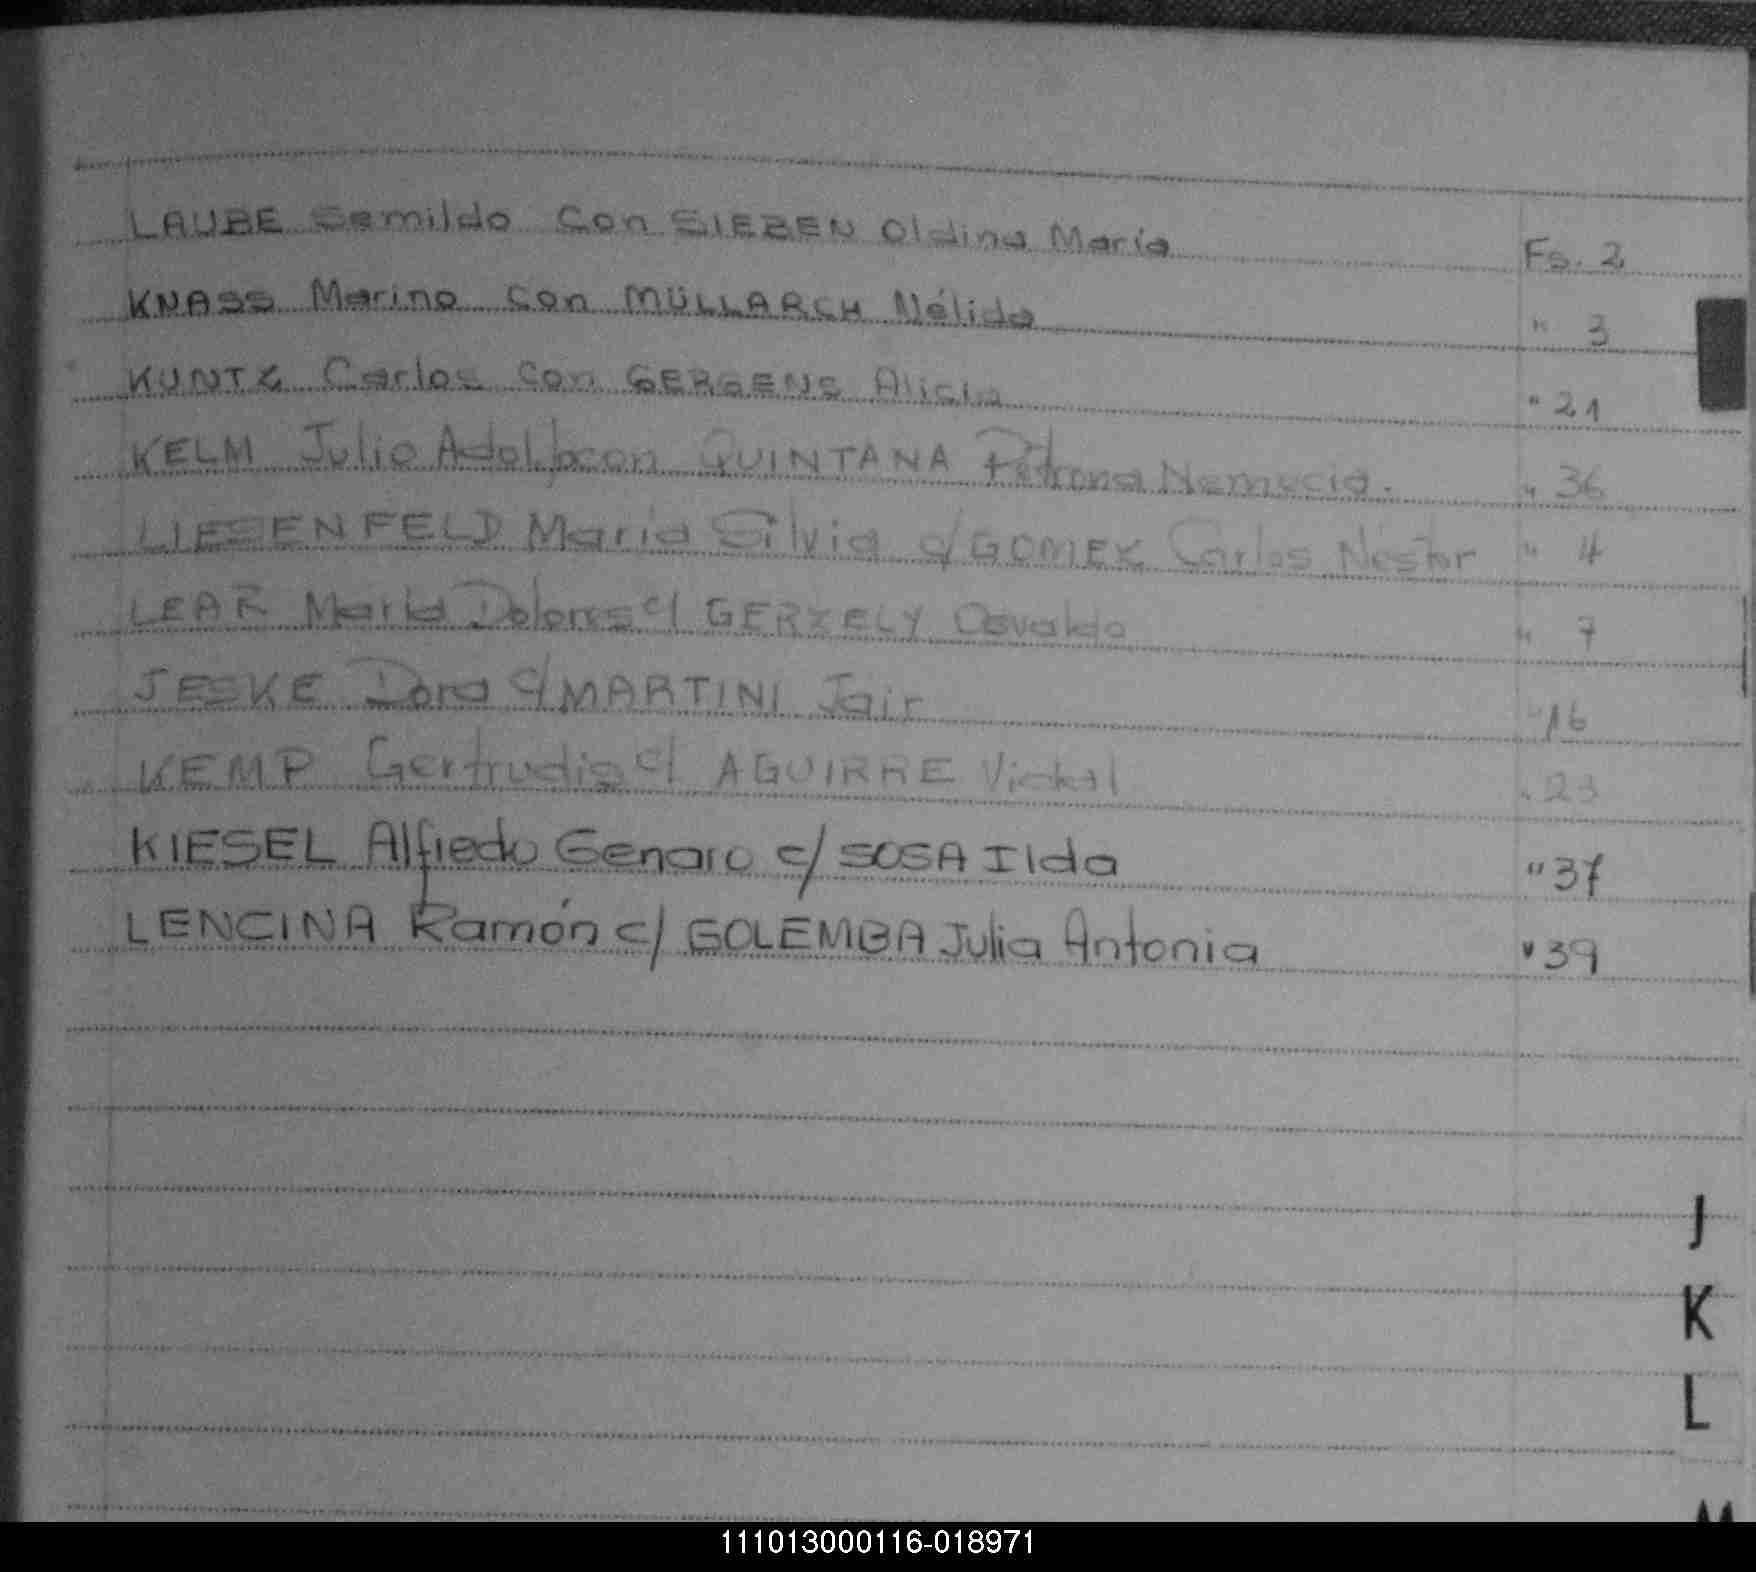 LAUBE Semildo Con SIEBEN Oldina María Fs. 2
KNASS Marino Con MÜLLARCH Nélida " 3
KUNTZ Carlos Con GERGENS Alicia " 21
KELM Julio Adolfo con QUINTANA Petrona Nemecia. " 36
LIESENFELD María Silvia c/ GOMEZ Carlos Néstor " 4
LEAR María Dolores c/ GERZELY Osvaldo " 7
JESKE Dora c/ MARTINI Jair " 16
KEMP Gertrudis c/ AGUIRRE " 23
KIESEL Alfredo Genaro c/ SOSA Ilda " 37
LENCINA Ramón c/ GOLEMBA Julia Antonia " 39
J
K
L
M
111013000116-018971